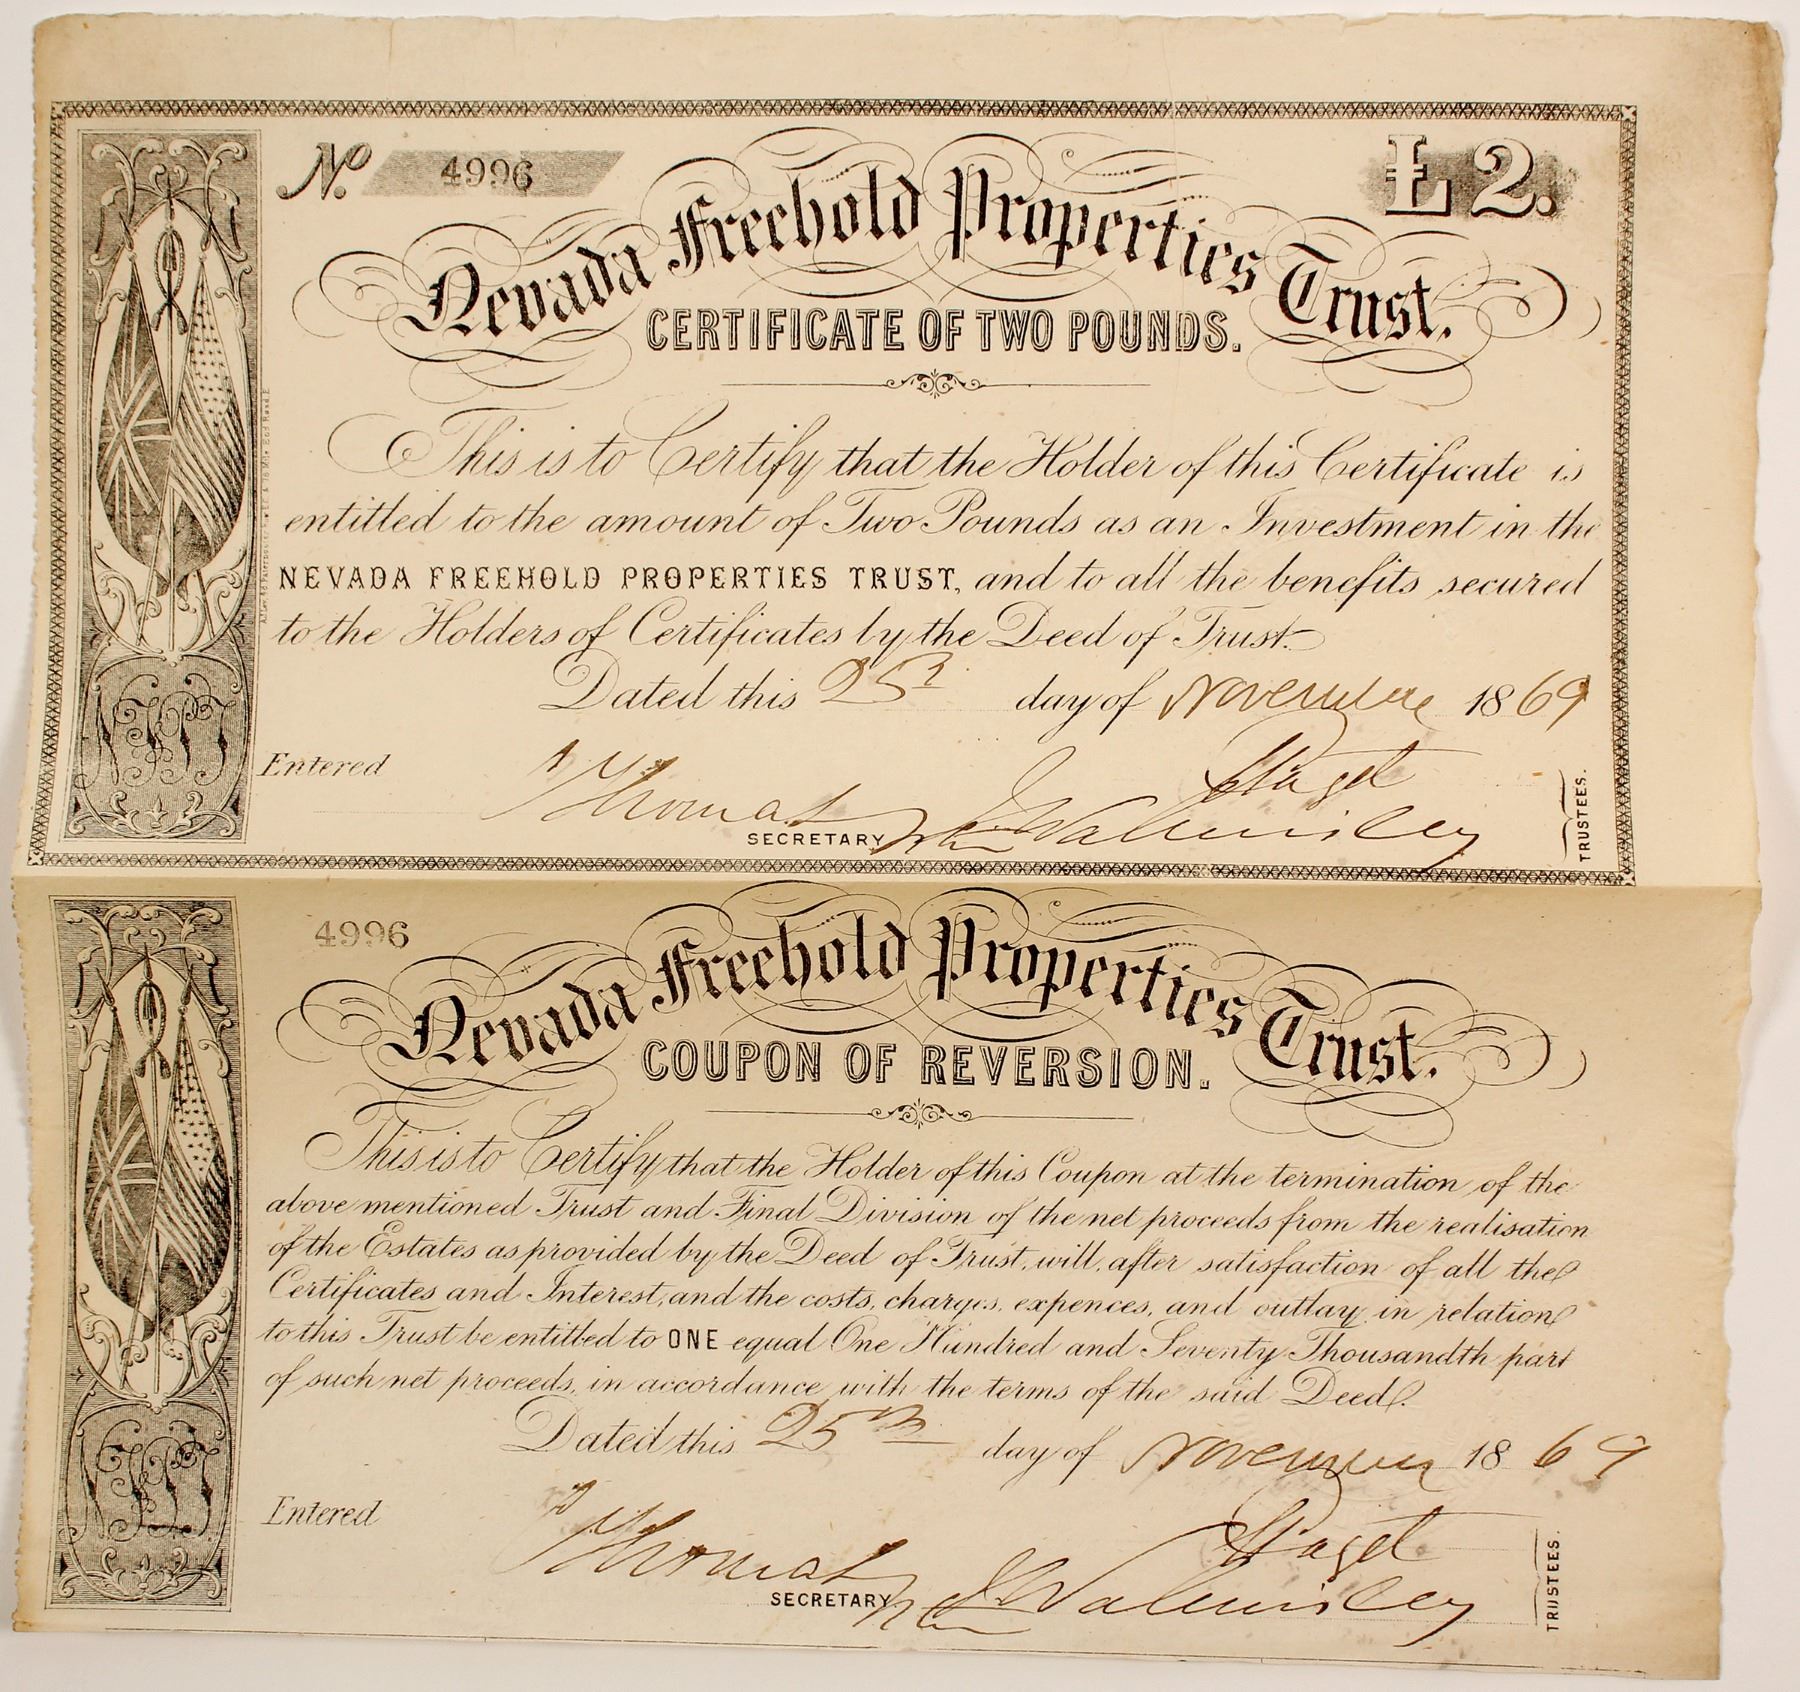 No. 4996
£2.
Nevada Freehold Properties Trust.
CERTIFICATE OF TWO POUNDS.
This is to Certify that the Holder of this Certificate is
entitled to the amount of Two Pounds as an Investment in the
NEVADA FREEHOLD PROPERTIES TRUST, and to all the benefits secured
to the Holders of Certificates by the Deed of Trust.
Dated this 25th day of November 1869
Entered
Thomas
Paget
J Walmisley
SECRETARY
TRUSTEES.
NFPT
4996
Nevada Freehold Properties Trust.
COUPON OF REVERSION.
This is to Certify that the Holder of this Coupon at the termination of the
above mentioned Trust and Final Division of the net proceeds from the realisation
of the Estates as provided by the Deed of Trust, will, after satisfaction of all the
Certificates and Interest, and the costs, charges, expences, and outlay in relation
to this Trust be entitled to ONE equal One Hundred and Seventy Thousandth part
of such net proceeds, in accordance with the terms of the said Deed.
Dated this 25th day of November 1869
Entered
Thomas
Paget
J Walmisley
SECRETARY
TRUSTEES.
NFPT